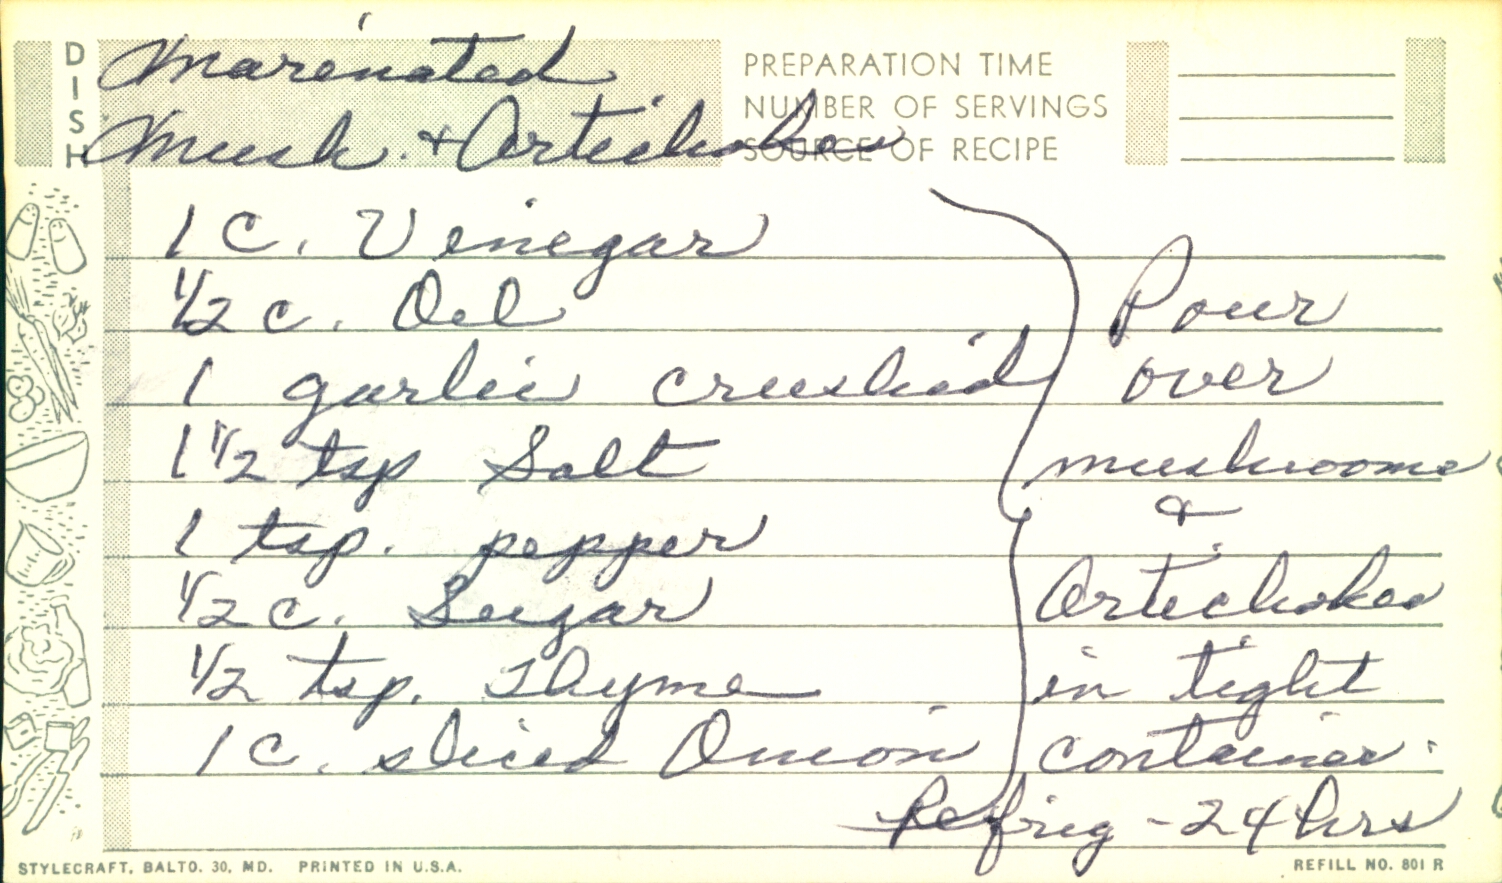 DISH
Marinated
Mush. + Artichokes
PREPARATION TIME
NUMBER OF SERVINGS
SOURCE OF RECIPE
1 c. Vinegar
1/2 c. Oil
1 garlic crushed
1 1/2 tsp Salt
1 tsp. pepper
1/2 c. Sugar
1/2 tsp. Thyme
1 c. sliced Onion
Pour
over
mushrooms
&
Artichokes
in tight
container.
Refrig - 24 hrs
STYLECRAFT, BALTO. 30, MD. PRINTED IN U.S.A.
REFILL NO. 801 R